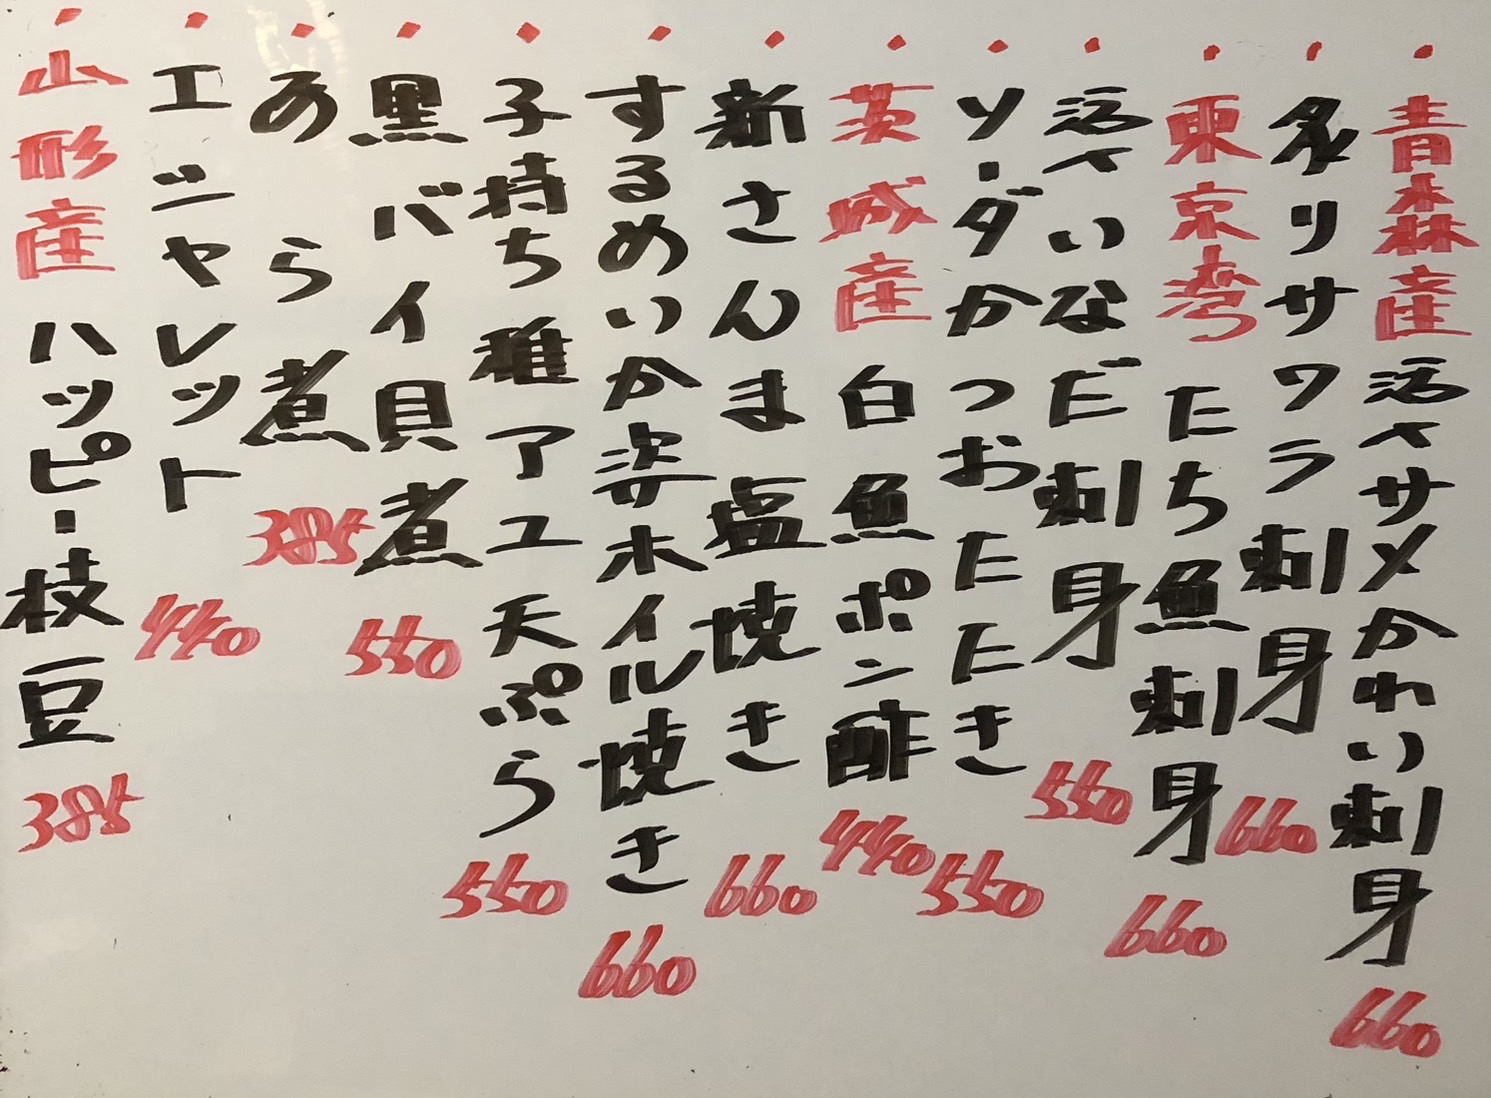 ・青森産 活〆サメかれい刺身 660
・炙りサワラ刺身 660
・東京湾 たち魚刺身 660
・活〆いなだ刺身 550
・ソーダかつおたたき 550
・茨城産 白魚ポン酢 440
・新さんま塩焼き 660
・するめいか姿ホイル焼き 660
・子持ち稚アユ天ぷら 550
・黒バイ貝煮 550
・あら煮 385
・エシャレット 440
・山形産 ハッピー枝豆 385